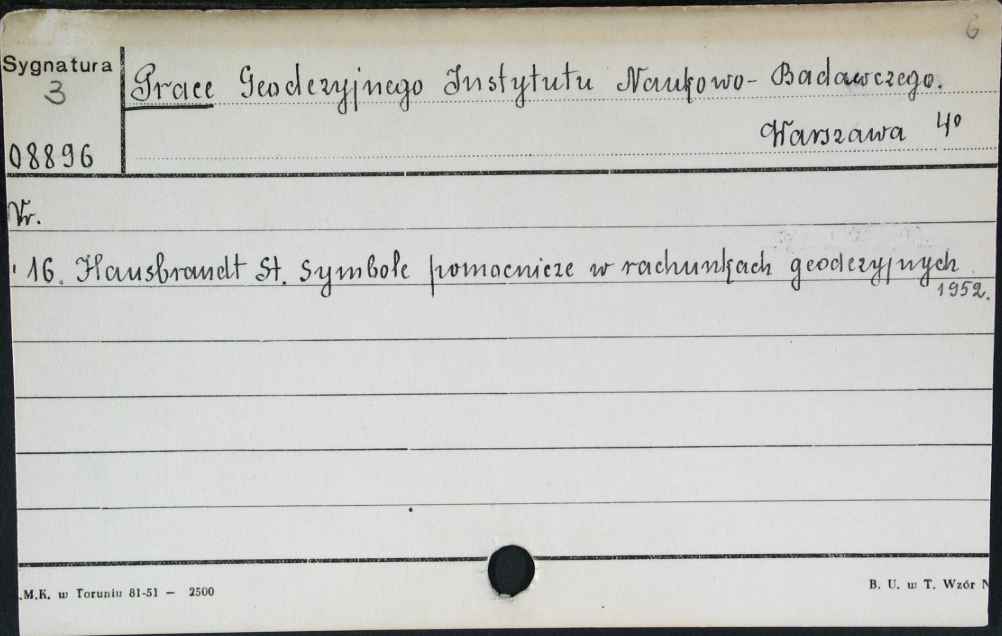 6
Sygnatura
3
08896
Prace Geodezyjnego Instytutu Naukowo-Badawczego.
Warszawa 4°
Nr.
16. Hausbrandt St. Symbole pomocnicze w rachunkach geodezyjnych
1952.
.M.K. w Toruniu 81-51 — 2500
B. U. w T. Wzór N